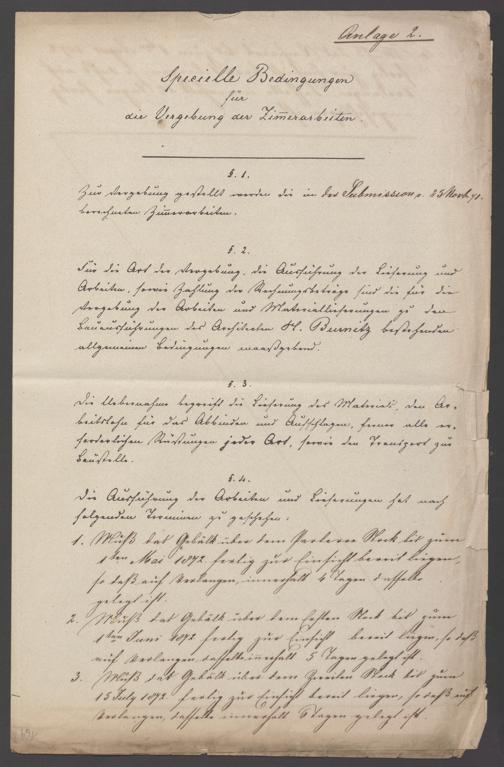 Anlage 2.
Specielle Bedingungen
für
die Vergebung der Zim̄erarbeiten.
§. 1.
Zur Vergebung gestellt werden die in der Submission v. 23 Novb. 71.
berechneten Zim̄erarbeiten.
§. 2.
Für die Art der Vergebung, die Ausführung der Lieferung und
Arbeiten, sowie Zahlung der Rechnungsbeträge sind die für die
Vergebung der Arbeiten und Materiallieferungen zu den
Bauausführungen des Architekten H. Burnitz bestehenden
allgemeinen Bedingungen maaßgebend.
§. 3.
Die Uebernahme begreift die Lieferung des Materials, den Ar-
beitslohn für das Abbinden und Aufschlagen, ferner alle er-
forderlichen Rüstungen jeder Art, sowie den Transport zur
Baustelle.
§. 4.
Die Ausführung der Arbeiten und Lieferungen hat nach
folgenden Terminen zu geschehen:
1. Muß das Gebälk über dem Parterre Stock bis zum
1ten Mai 1872 fertig zur Einsicht bereit liegen,
so daß auf Verlangen, innerhalb 4 Tagen dasselbe
gelegt ist.
2. Muß das Gebälk über dem Ersten Stock bis zum
1ten Juni 1872 fertig zur Einsicht bereit liegen, so daß
auf Verlangen dasselbe innerhalb 5 Tagen gelegt ist.
3. Muß das Gebälk über dem Zweiten Stock bis zum
15 July 1872 fertig zur Einsicht bereit liegen, so daß auf
Verlangen, dasselbe innerhalb 5 Tagen gelegt ist.